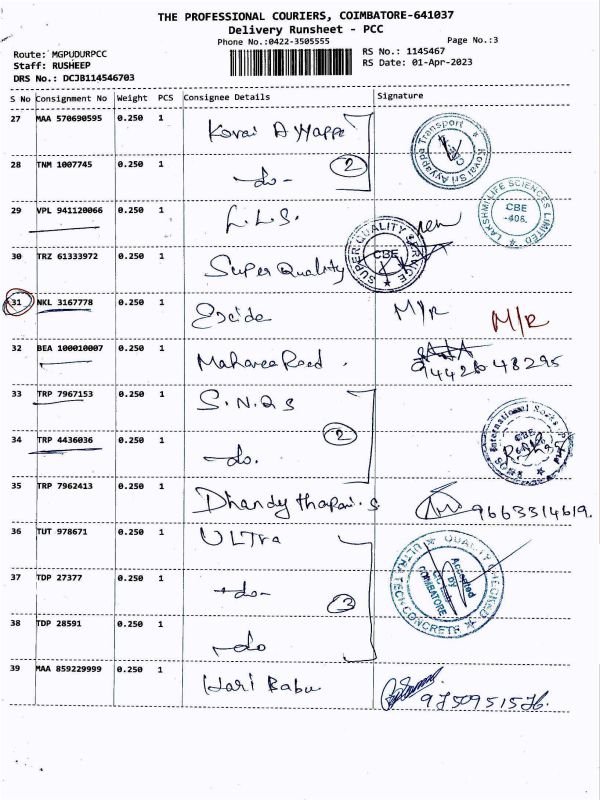 THE PROFESSIONAL COURIERS, COIMBATORE-641037
Delivery Runsheet - PCC
Phone No.:0422-3505555 Page No.:3
Route: MGPUDURPCC RS No.: 1145467
Staff: RUSHEEP RS Date: 01-Apr-2023
DRS No.: DCJB114546703
S No Consignment No Weight PCS Consignee Details Signature
27 MAA 570690595 0.250 1 Kovai Ayyappa
Kovai Sri Ayyappa Transport
28 TNM 1007745 0.250 1 -do- 2
29 VPL 941120066 0.250 1 L.L.S.
LAKSHMI LIFE SCIENCES LIMITED CBE -408.
30 TRZ 61333972 0.250 1 Super Quality
SUPER QUALITY SERVICE CBE
31 NKL 3167778 0.250 1 Exide M/R M/R
32 BEA 100010007 0.250 1
33 TRP 7967153 0.250 1 S.N.Q S
34 TRP 4436036 0.250 1 -do. 2
International CBE
35 TRP 7962413 0.250 1 9663314619.
36 TUT 978671 0.250 1 ULTra
ULTRATECH CONCRETE QUALITY CHECKED Accepted by COIMBATORE
37 TDP 27377 0.250 1 -do- 3
38 TDP 28591 0.250 1 -do
39 MAA 859229999 0.250 1 Hari Babu